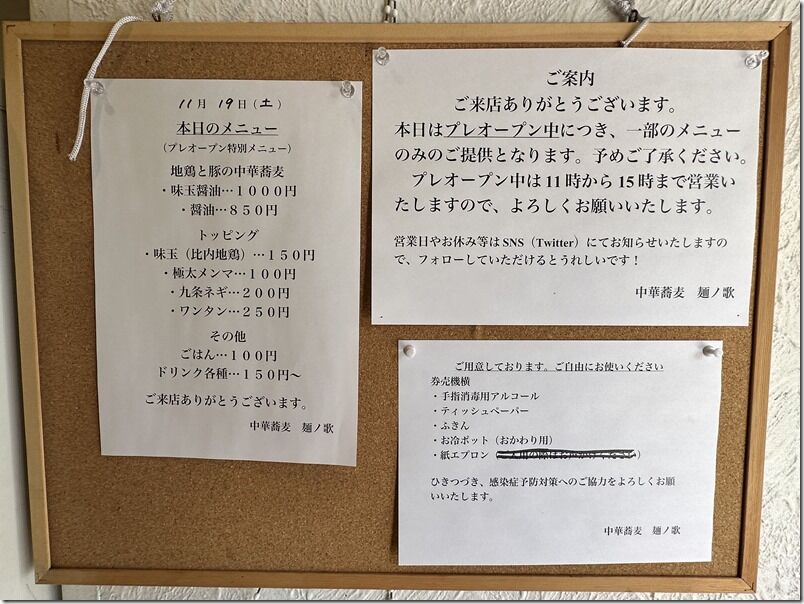 11月 19日(土)
本日のメニュー
(プレオープン特別メニュー)
地鶏と豚の中華蕎麦
・味玉醤油…1000円
・醤油…850円
トッピング
・味玉(比内地鶏)…150円
・極太メンマ…100円
・九条ネギ…200円
・ワンタン…250円
その他
ごはん…100円
ドリンク各種…150円~
ご来店ありがとうございます。
中華蕎麦 麺ノ歌
ご案内
ご来店ありがとうございます。
本日はプレオープン中につき、一部のメニュー
のみのご提供となります。予めご了承ください。
プレオープン中は11時から15時まで営業い
たしますので、よろしくお願いいたします。
営業日やお休み等はSNS(Twitter)にてお知らせいたしますの
で、フォローしていただけるとうれしいです!
中華蕎麦 麺ノ歌
ご用意しております。ご自由にお使いください
券売機横
・手指消毒用アルコール
・ティッシュペーパー
・ふきん
・お冷ポット(おかわり用)
・紙エプロン
ひきつづき、感染症予防対策へのご協力をよろしくお願
いいたします。
中華蕎麦 麺ノ歌